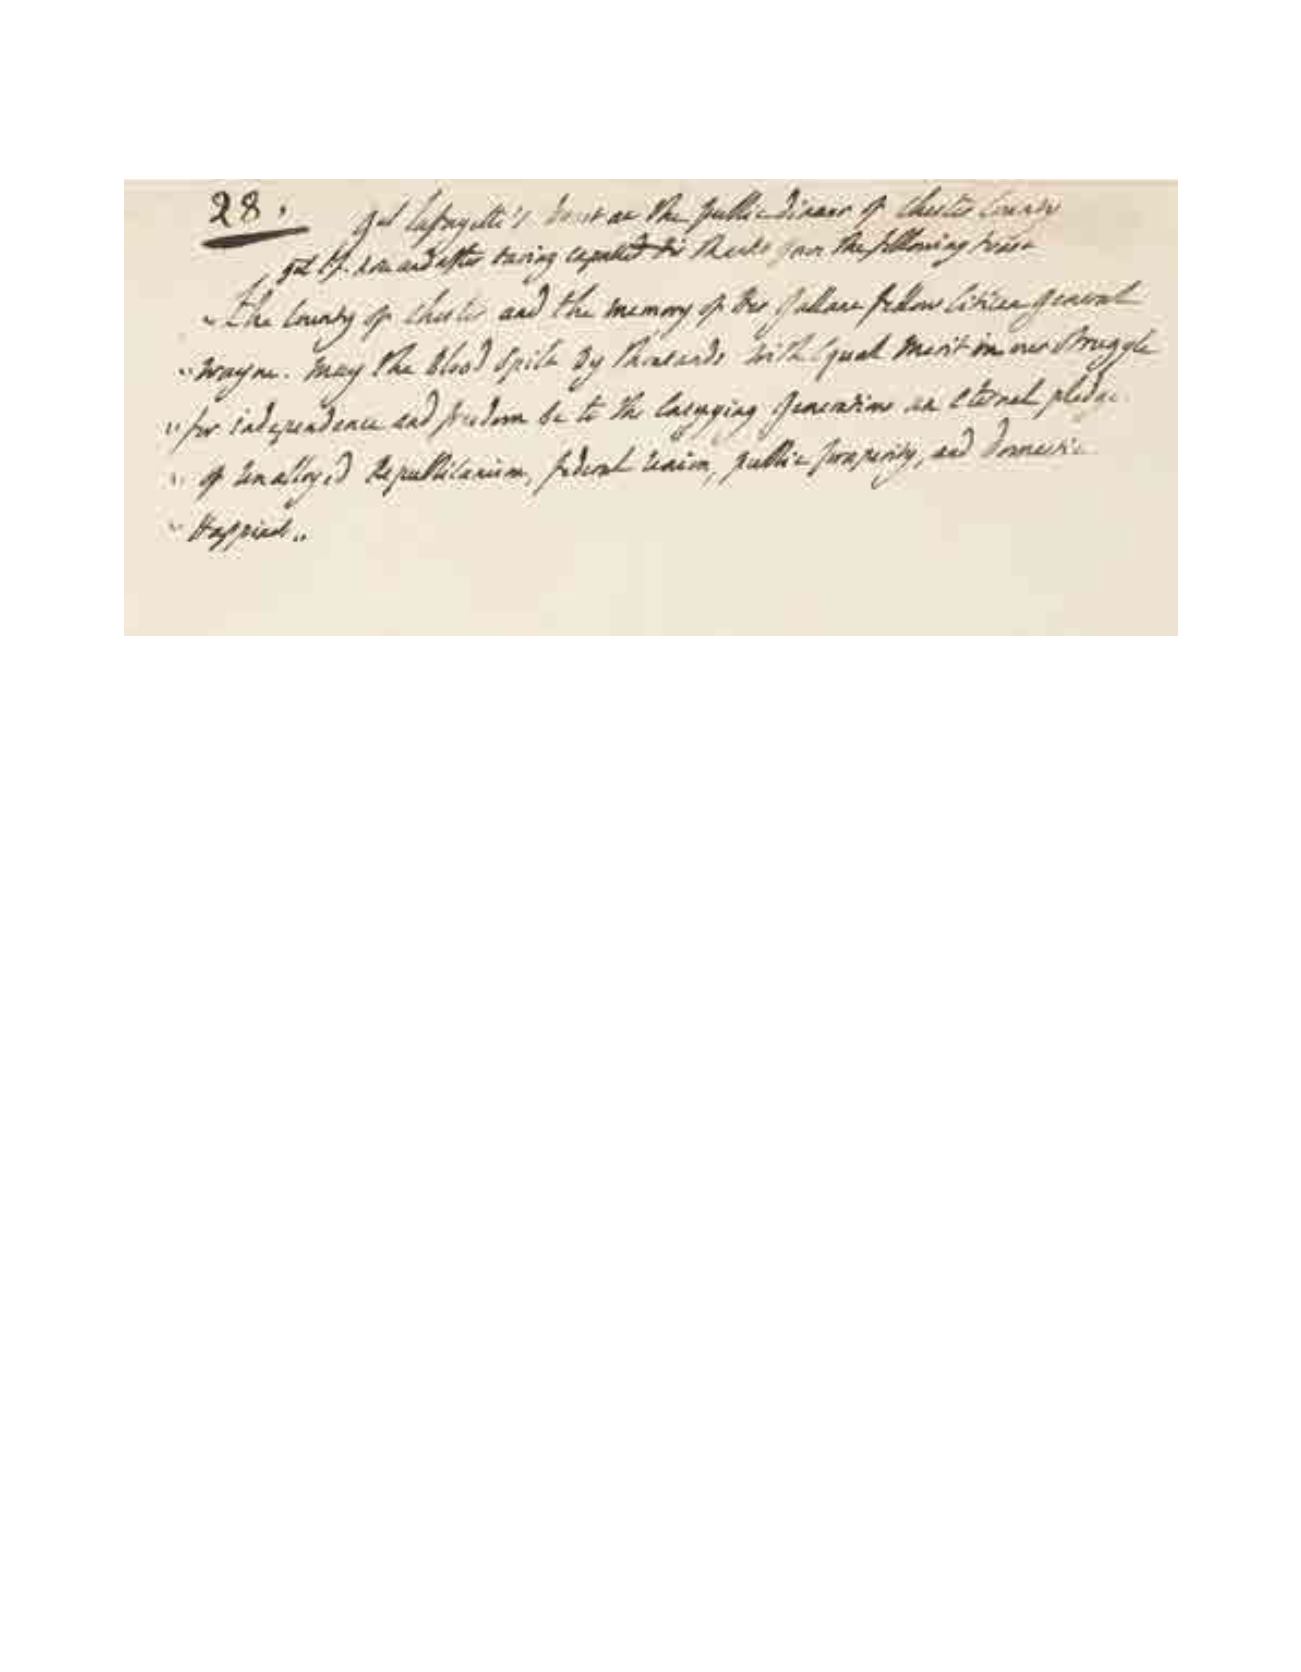 28.
Gal Lafayette's toast at the public dinner of Chester County
gal Lf. rose and after having expressed his thanks gave the following toast
"The County of Chester and the memory of her gallant fellow Citizen general
" Wayne. May the blood spilt by thousands with Equal Merit in our struggle
" for independence and freedom be to the Ensuing generations an eternal pledge
" of unalloyed Republicanism, federal union, public prosperity, and domestic
" Happiness "